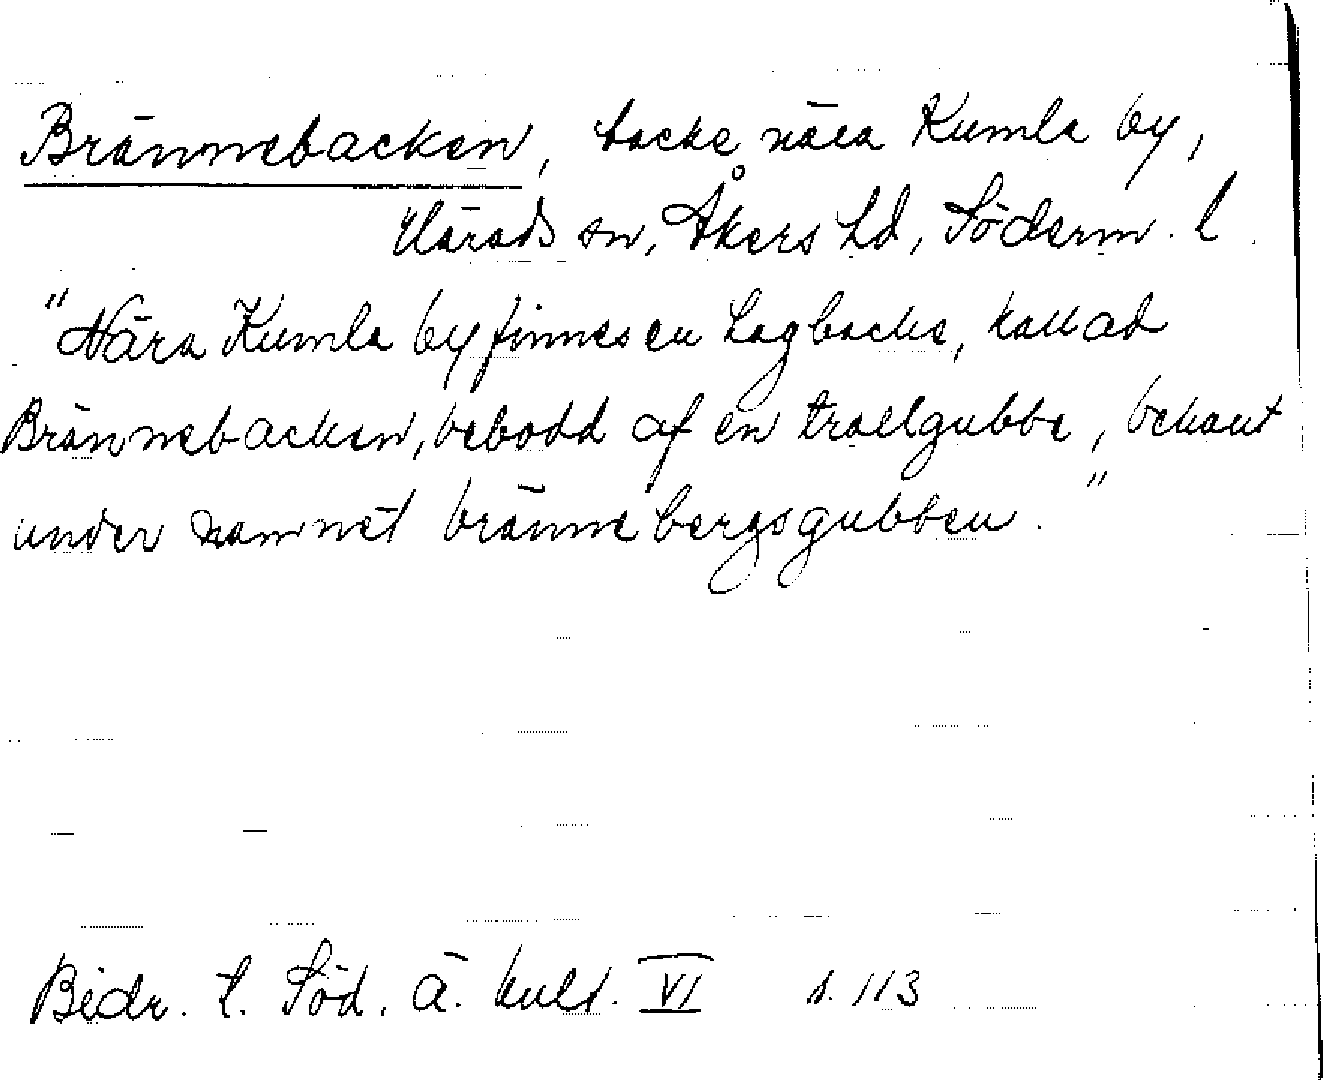 Brännebacken, backe nära Kumla by,
Härads sn, Åkers hd, Söderm. l.
"Nära Kumla by finnes en hagbacke, kallad
Brännebacken, bebodd af en trollgubbe, bekant
under namnet brännebergsgubben."
Bidr. t. Söd. ä. kult. VI s. 113